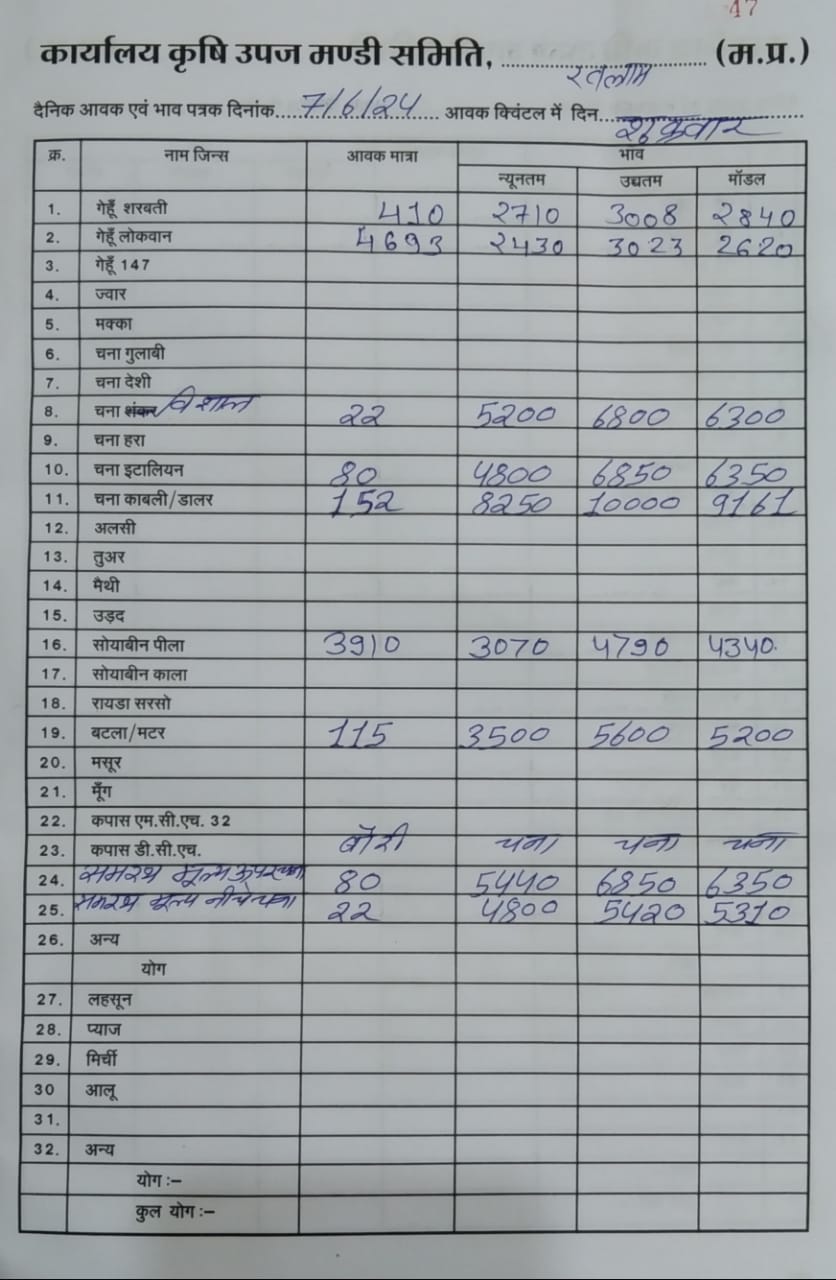 47
कार्यालय कृषि उपज मण्डी समिति, रतलाम (म.प्र.)
दैनिक आवक एवं भाव पत्रक दिनांक 7/6/24 आवक क्विंटल में दिन शुक्रवार
क्र. नाम जिन्स आवक मात्रा भाव
न्यूनतम उद्यतम मॉडल
1. गेहूँ शरबती 410 2710 3008 2840
2. गेहूँ लोकवान 4693 2430 3023 2620
3. गेहूँ 147
4. ज्वार
5. मक्का
6. चना गुलाबी
7. चना देशी
8. चना शंकर/विशाल 22 5200 6800 6300
9. चना हरा
10. चना इटालियन 80 4800 6850 6350
11. चना काबली/डालर 152 8250 10000 9161
12. अलसी
13. तुअर
14. मैथी
15. उड़द
16. सोयाबीन पीला 3910 3070 4790 4340
17. सोयाबीन काला
18. रायडा सरसो
19. बटला/मटर 115 3500 5600 5200
20. मसूर
21. मूँग
22. कपास एम.सी.एच. 32
23. कपास डी.सी.एच. बोरी चना चना चना
24. समरथ मूल्य ऊपर चना 80 5440 6850 6350
25. समरथ मूल्य नीचे चना 22 4800 5420 5310
26. अन्य
योग
27. लहसून
28. प्याज
29. मिर्ची
30 आलू
31.
32. अन्य
योग :–
कुल योग :–